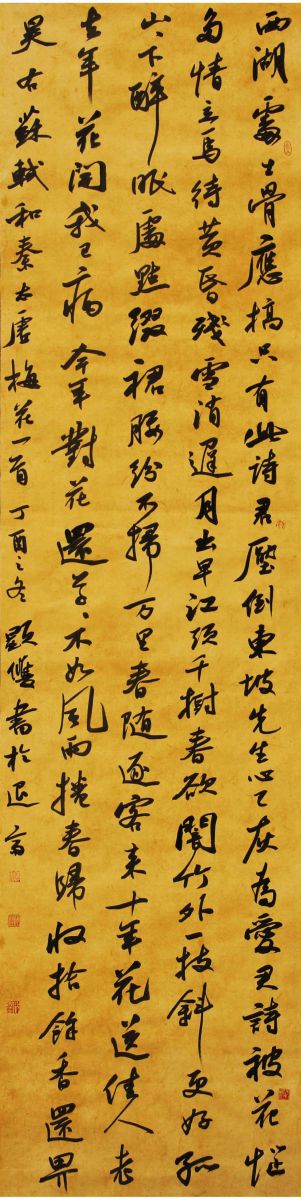 西湖處士骨應槁只有此詩君壓倒東坡先生心已灰為愛君詩被花惱
多情立馬待黃昏殘雪消遲月出早江頭千樹春欲闇竹外一枝斜更好孤
山々下醉眠處點綴裙腰紛不掃万里春随逐客来十年花送佳人老
去年花開我已病今年對花還草々不如風雨捲春歸收拾餘香還畀
昊右蘇軾和秦太虛梅花一首丁酉之冬顯書於退齋